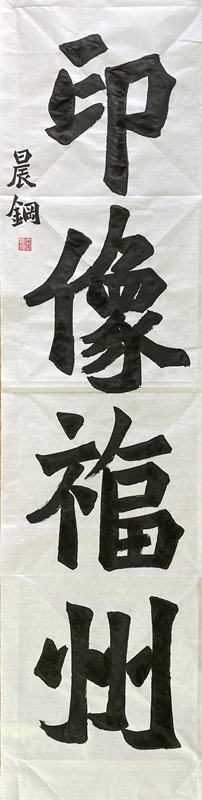 印像福州
晨鋼